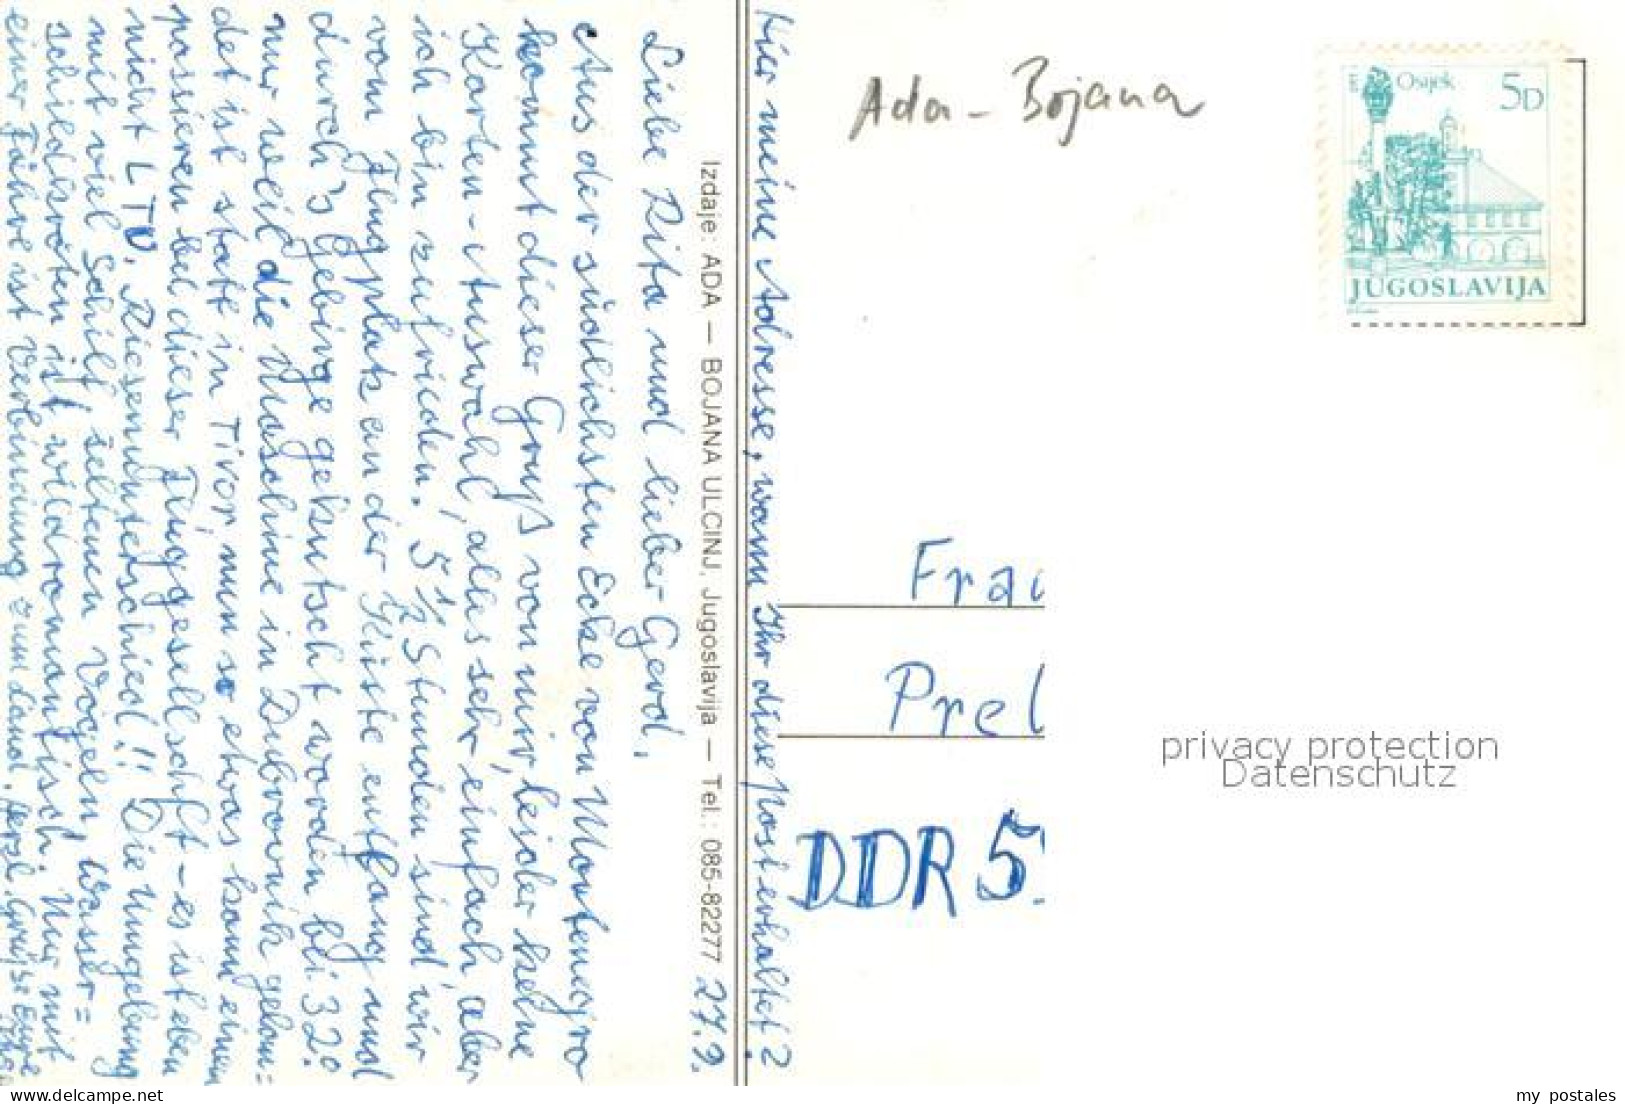 27.9.
Liebe Rita und lieber Gerd,
Aus der südlichsten Ecke von Montenegro
kommt dieser Gruß von mir, leider keine
Karten-Auswahl, alles sehr einfach, aber
ich bin zufrieden. 5 1/2 Stunden sind wir
vom Flugplatz an der Küste entlang und
durch's Gebirge gekutscht worden bei 32°
nur weil die Maschine in Dubrovnik gelan=
det ist statt in Tivor, nun so etwas kann einem
passieren bei dieser Fluggesellschft - es ist eben
nicht LTU. Riesenunterschied!! Die Umgebung
mit viel Schilf, seltenen Vögeln, Wasser=
schildkröten ist wildromantisch. Nur mit
einer Fähre ist Verbindung zum Land. Herzl. Grüße Eure
Izdaje: ADA — BOJANA ULCINJ, Jugoslavija — Tel.: 085-82277
Hier meine Adresse, wann Ihr diese Post erhaltet?
Ada - Bojana
Osijek
5D
JUGOSLAVIJA
Frau
Prel
DDR 5
privacy protection
Datenschutz
www.delcampe.net
my_postales